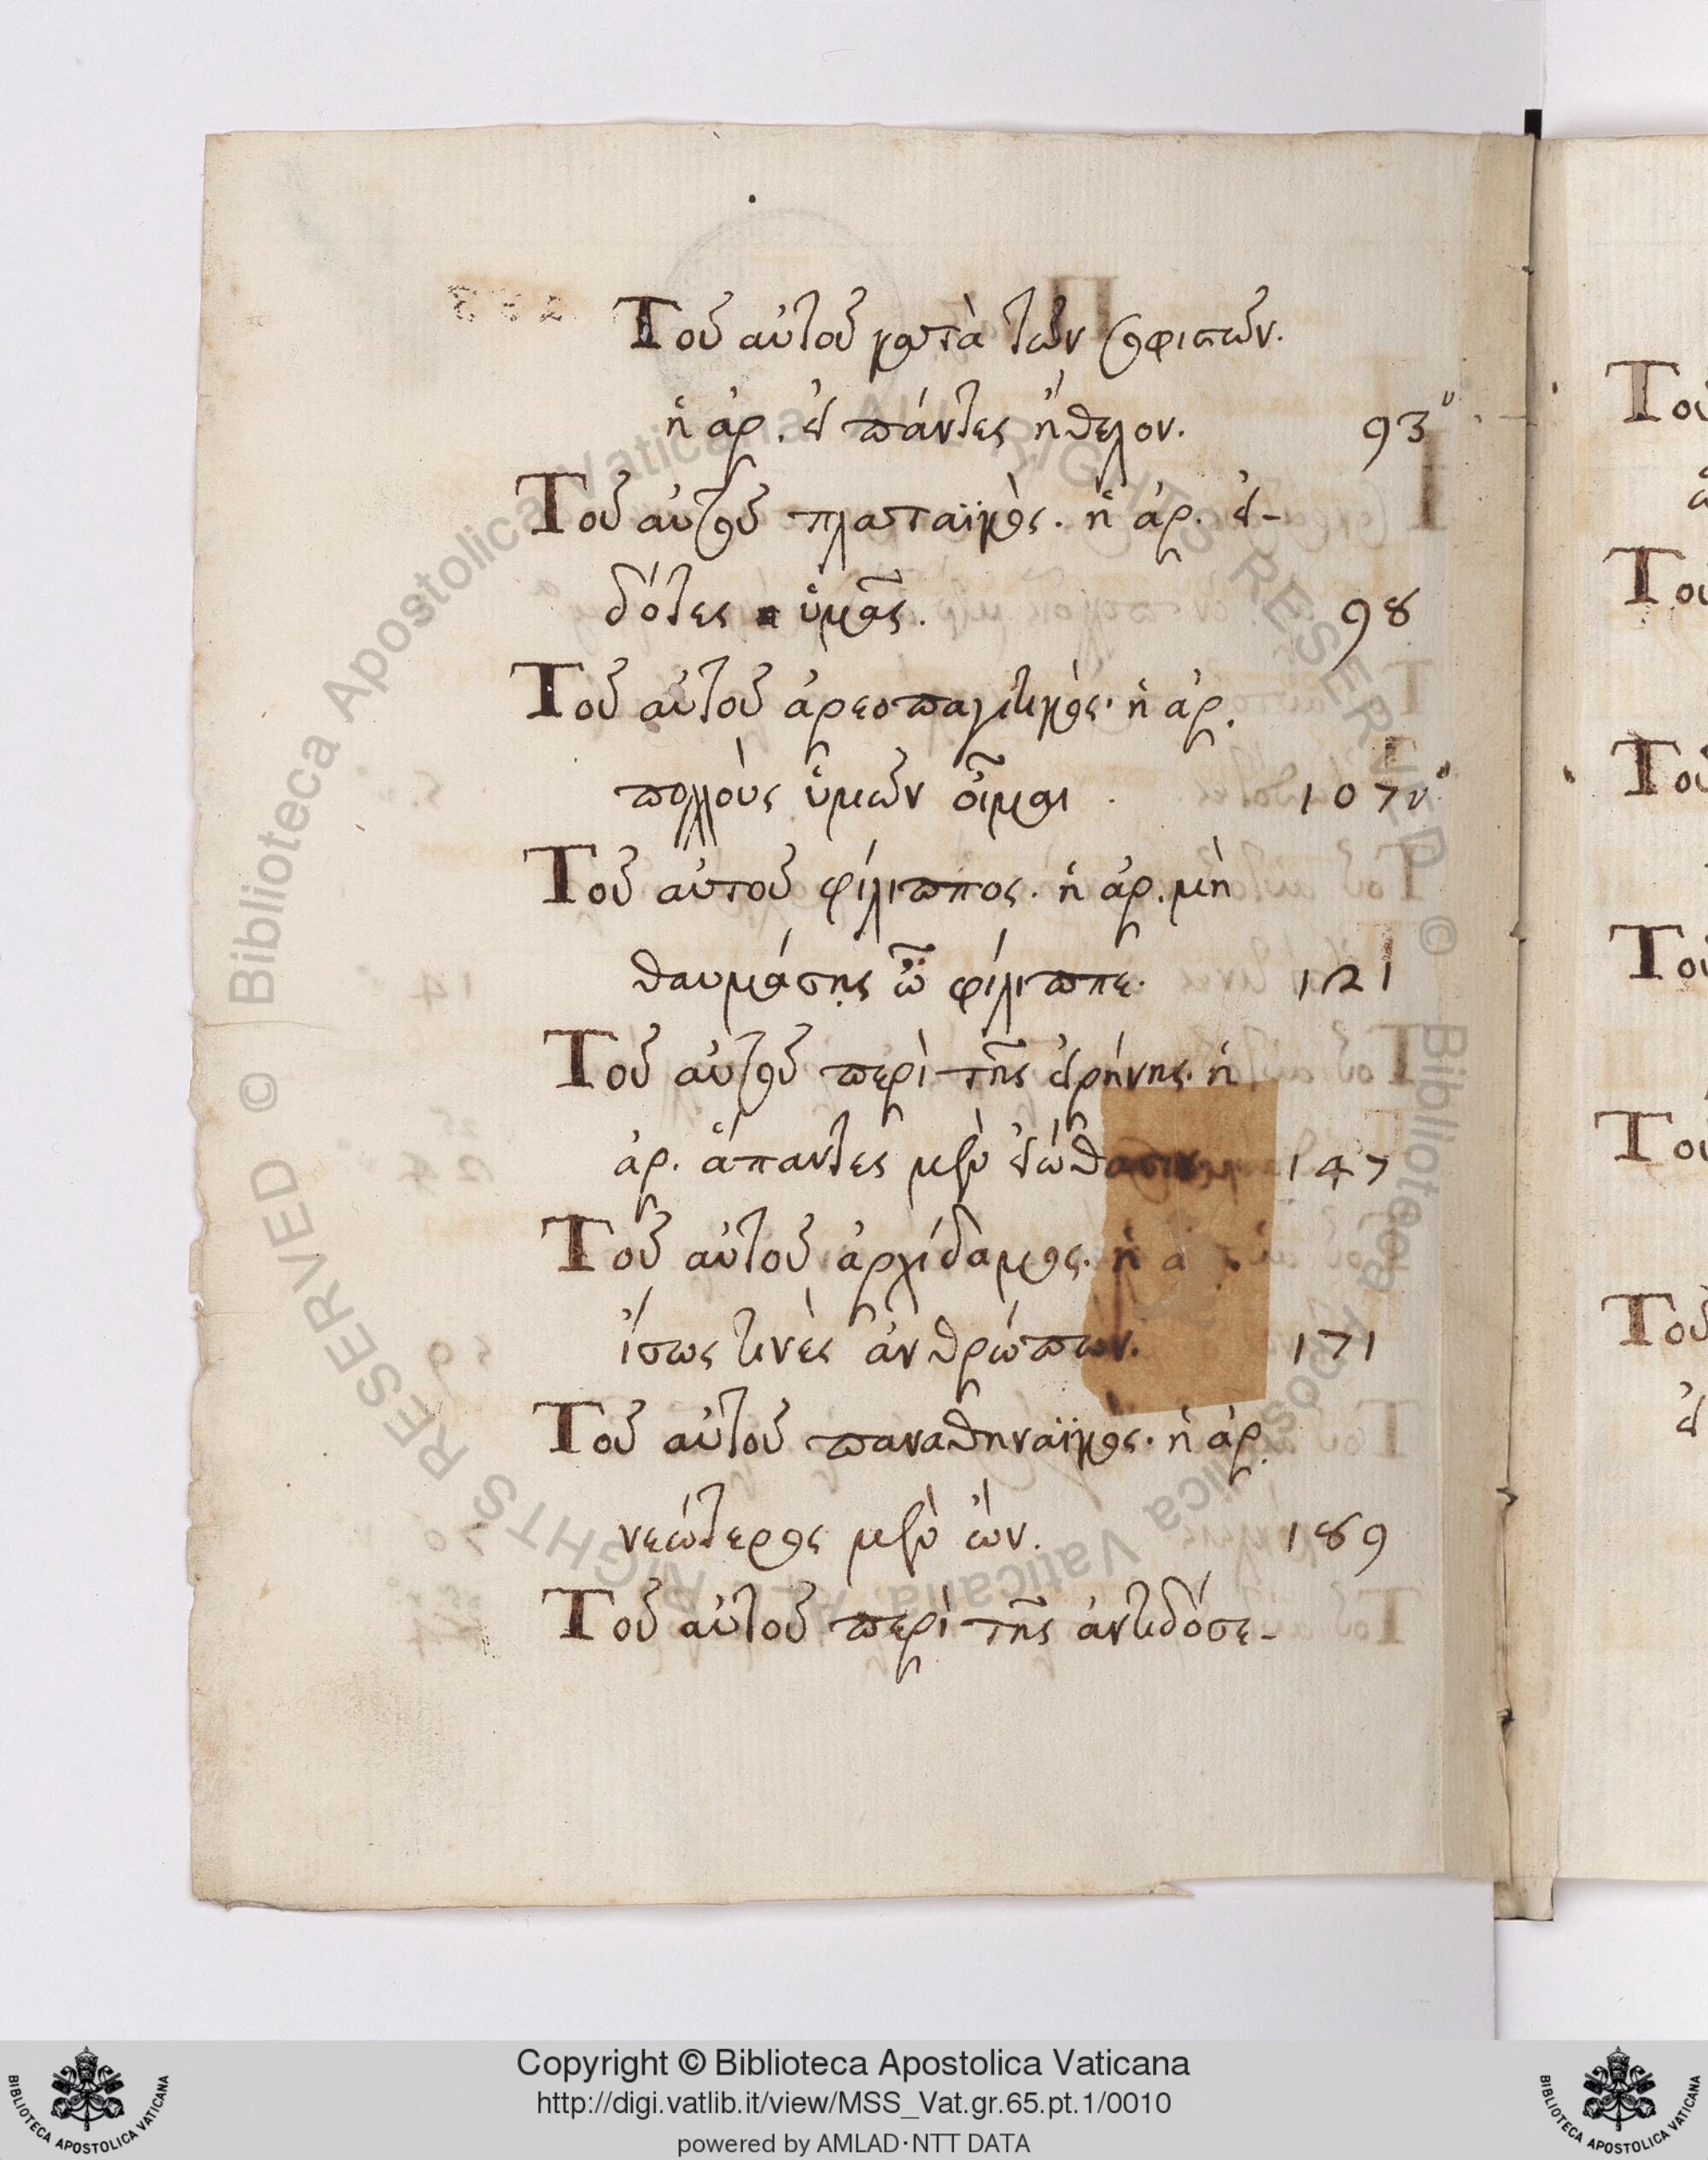 Τοῦ αὐτοῦ κατὰ τῶν σοφιστῶν.
ἡ ἀρ. εἰ πάντες ἤθελον. 93υ
Τοῦ αὐτοῦ πλαταϊκὸς. ἡ ἀρ. εἰ-
δότες ὑμᾶς. 98
Τοῦ αὐτοῦ ἀρεοπαγιτικὸς. ἡ ἀρ.
πολλοὺς ὑμῶν οἶμαι . 107υ
Τοῦ αὐτοῦ φίλιππος. ἡ ἀρ. μὴ
θαυμάσῃς ὦ φίλιππε. 121
Τοῦ αὐτοῦ περὶ τῆς εἰρήνης. ἡ
ἀρ. ἅπαντες μὲν εἰώθασιν 147
Τοῦ αὐτοῦ ἀρχίδαμος. ἡ ἀ
ἴσως τινὲς ἀνθρώπων. 171
Τοῦ αὐτοῦ παναθηναϊκὸς. ἡ ἀρ.
νεώτερος μὲν ὤν. 189
Τοῦ αὐτοῦ περὶ τῆς ἀντιδόσε-
Του
Του
Του
Του
Του
Τοῦ
© Biblioteca Apostolica Vaticana ALL RIGHTS RESERVED © Biblioteca Apostolica Vaticana ALL RIGHTS RESERVED
Copyright © Biblioteca Apostolica Vaticana
http://digi.vatlib.it/view/MSS_Vat.gr.65.pt.1/0010
powered by AMLAD·NTT DATA
BIBLIOTECA APOSTOLICA VATICANA
BIBLIOTECA APOSTOLICA VATICANA